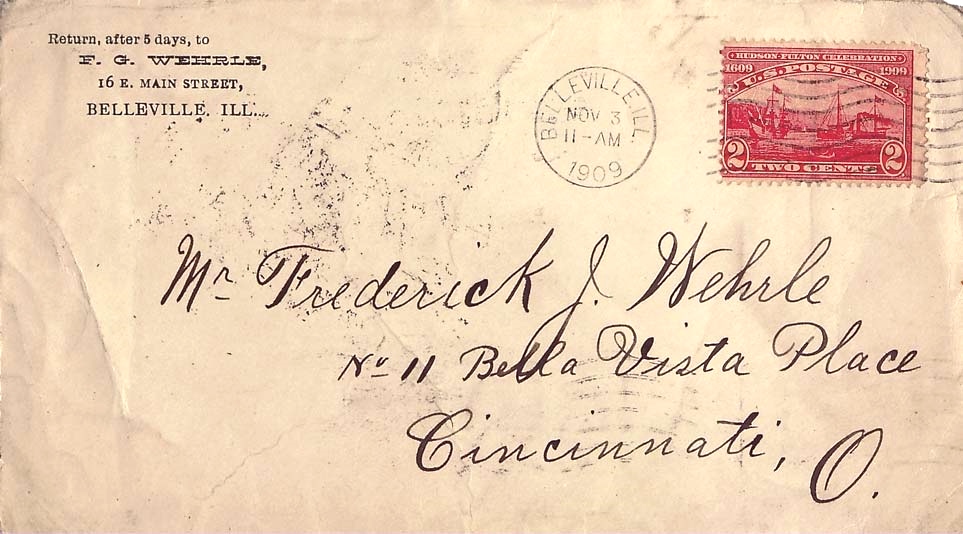 Return, after 5 days, to
F. G. WEHRLE,
16 E. MAIN STREET,
BELLEVILLE, ILL.
BELLEVILLE. ILL.
NOV 3
11-AM
1909
HUDSON-FULTON CELEBRATION
1609 1909
U.S. POSTAGE
2 2
TWO CENTS
Mr. Frederick J. Wehrle
No 11 Bella Vista Place
Cincinnati, O.